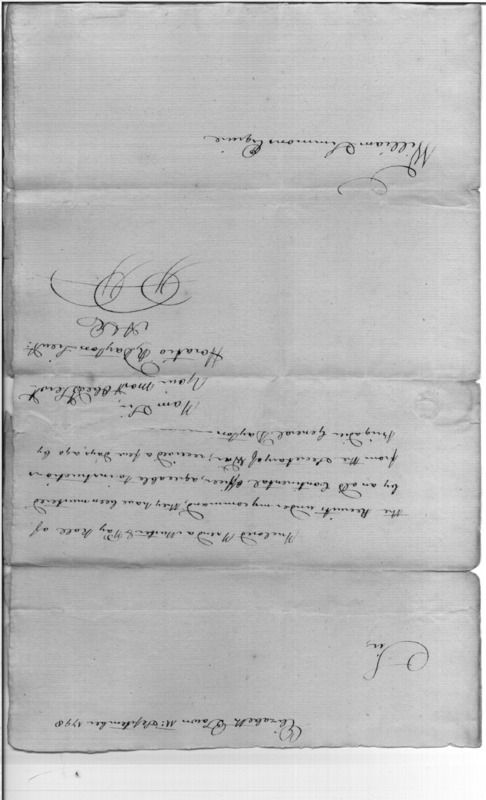 Elizabeth Town 11: September 1798
Sir,
Inclosed I send a Muster & Pay Roll of
the Recruits under my command, they have been mustered
by an old Continental officer, agreeable to instructions
from the Secretary of War, received a few days ago by
Brigadier General Dayton
I am Sir,
Your most Obedt. Servt.
Horatio R Dayton Lieut.
William Simmons Esquire